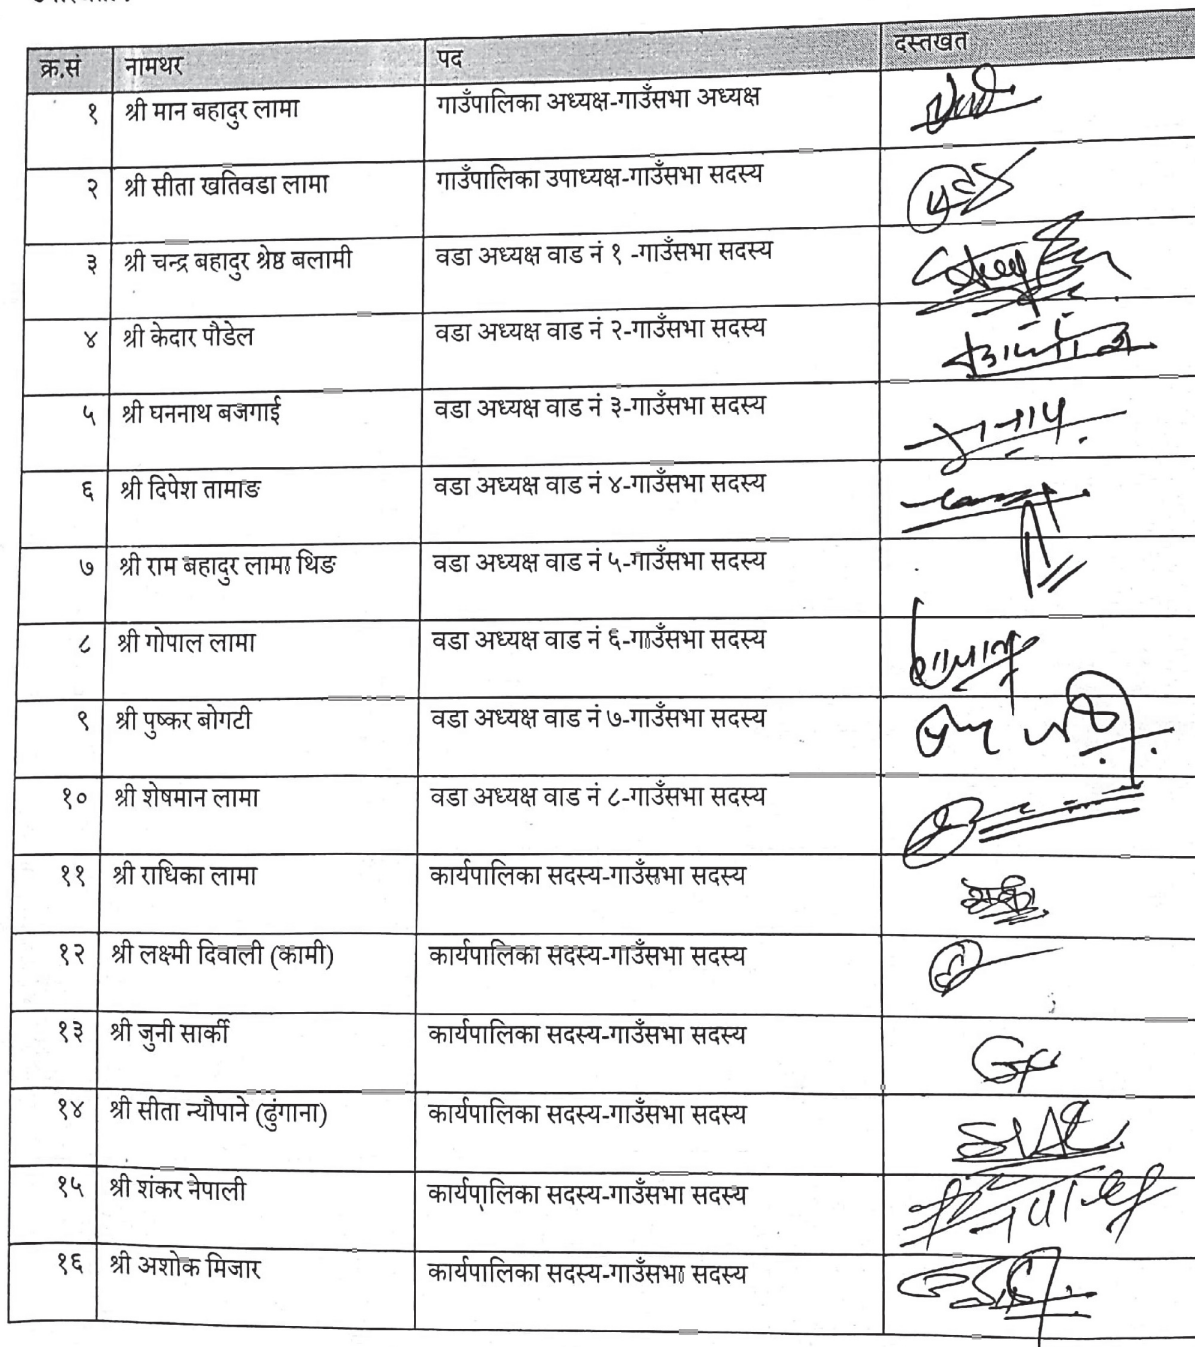 क्र.सं नामथर पद दस्तखत
१ श्री मान बहादुर लामा गाउँपालिका अध्यक्ष-गाउँसभा अध्यक्ष
२ श्री सीता खतिवडा लामा गाउँपालिका उपाध्यक्ष-गाउँसभा सदस्य
३ श्री चन्द्र बहादुर श्रेष्ठ बलामी वडा अध्यक्ष वाड नं १ -गाउँसभा सदस्य
४ श्री केदार पौडेल वडा अध्यक्ष वाड नं २-गाउँसभा सदस्य
५ श्री घननाथ बजगाई वडा अध्यक्ष वाड नं ३-गाउँसभा सदस्य
६ श्री दिपेश तामाङ वडा अध्यक्ष वाड नं ४-गाउँसभा सदस्य
७ श्री राम बहादुर लामा थिङ वडा अध्यक्ष वाड नं ५-गाउँसभा सदस्य
८ श्री गोपाल लामा वडा अध्यक्ष वाड नं ६-गाउँसभा सदस्य
९ श्री पुष्कर बोगटी वडा अध्यक्ष वाड नं ७-गाउँसभा सदस्य
१० श्री शेषमान लामा वडा अध्यक्ष वाड नं ८-गाउँसभा सदस्य
११ श्री राधिका लामा कार्यपालिका सदस्य-गाउँसभा सदस्य
१२ श्री लक्ष्मी दिवाली (कामी) कार्यपालिका सदस्य-गाउँसभा सदस्य
१३ श्री जुनी सार्की कार्यपालिका सदस्य-गाउँसभा सदस्य
१४ श्री सीता न्यौपाने (ढुंगाना) कार्यपालिका सदस्य-गाउँसभा सदस्य
१५ श्री शंकर नेपाली कार्यपालिका सदस्य-गाउँसभा सदस्य
१६ श्री अशोक मिजार कार्यपालिका सदस्य-गाउँसभा सदस्य